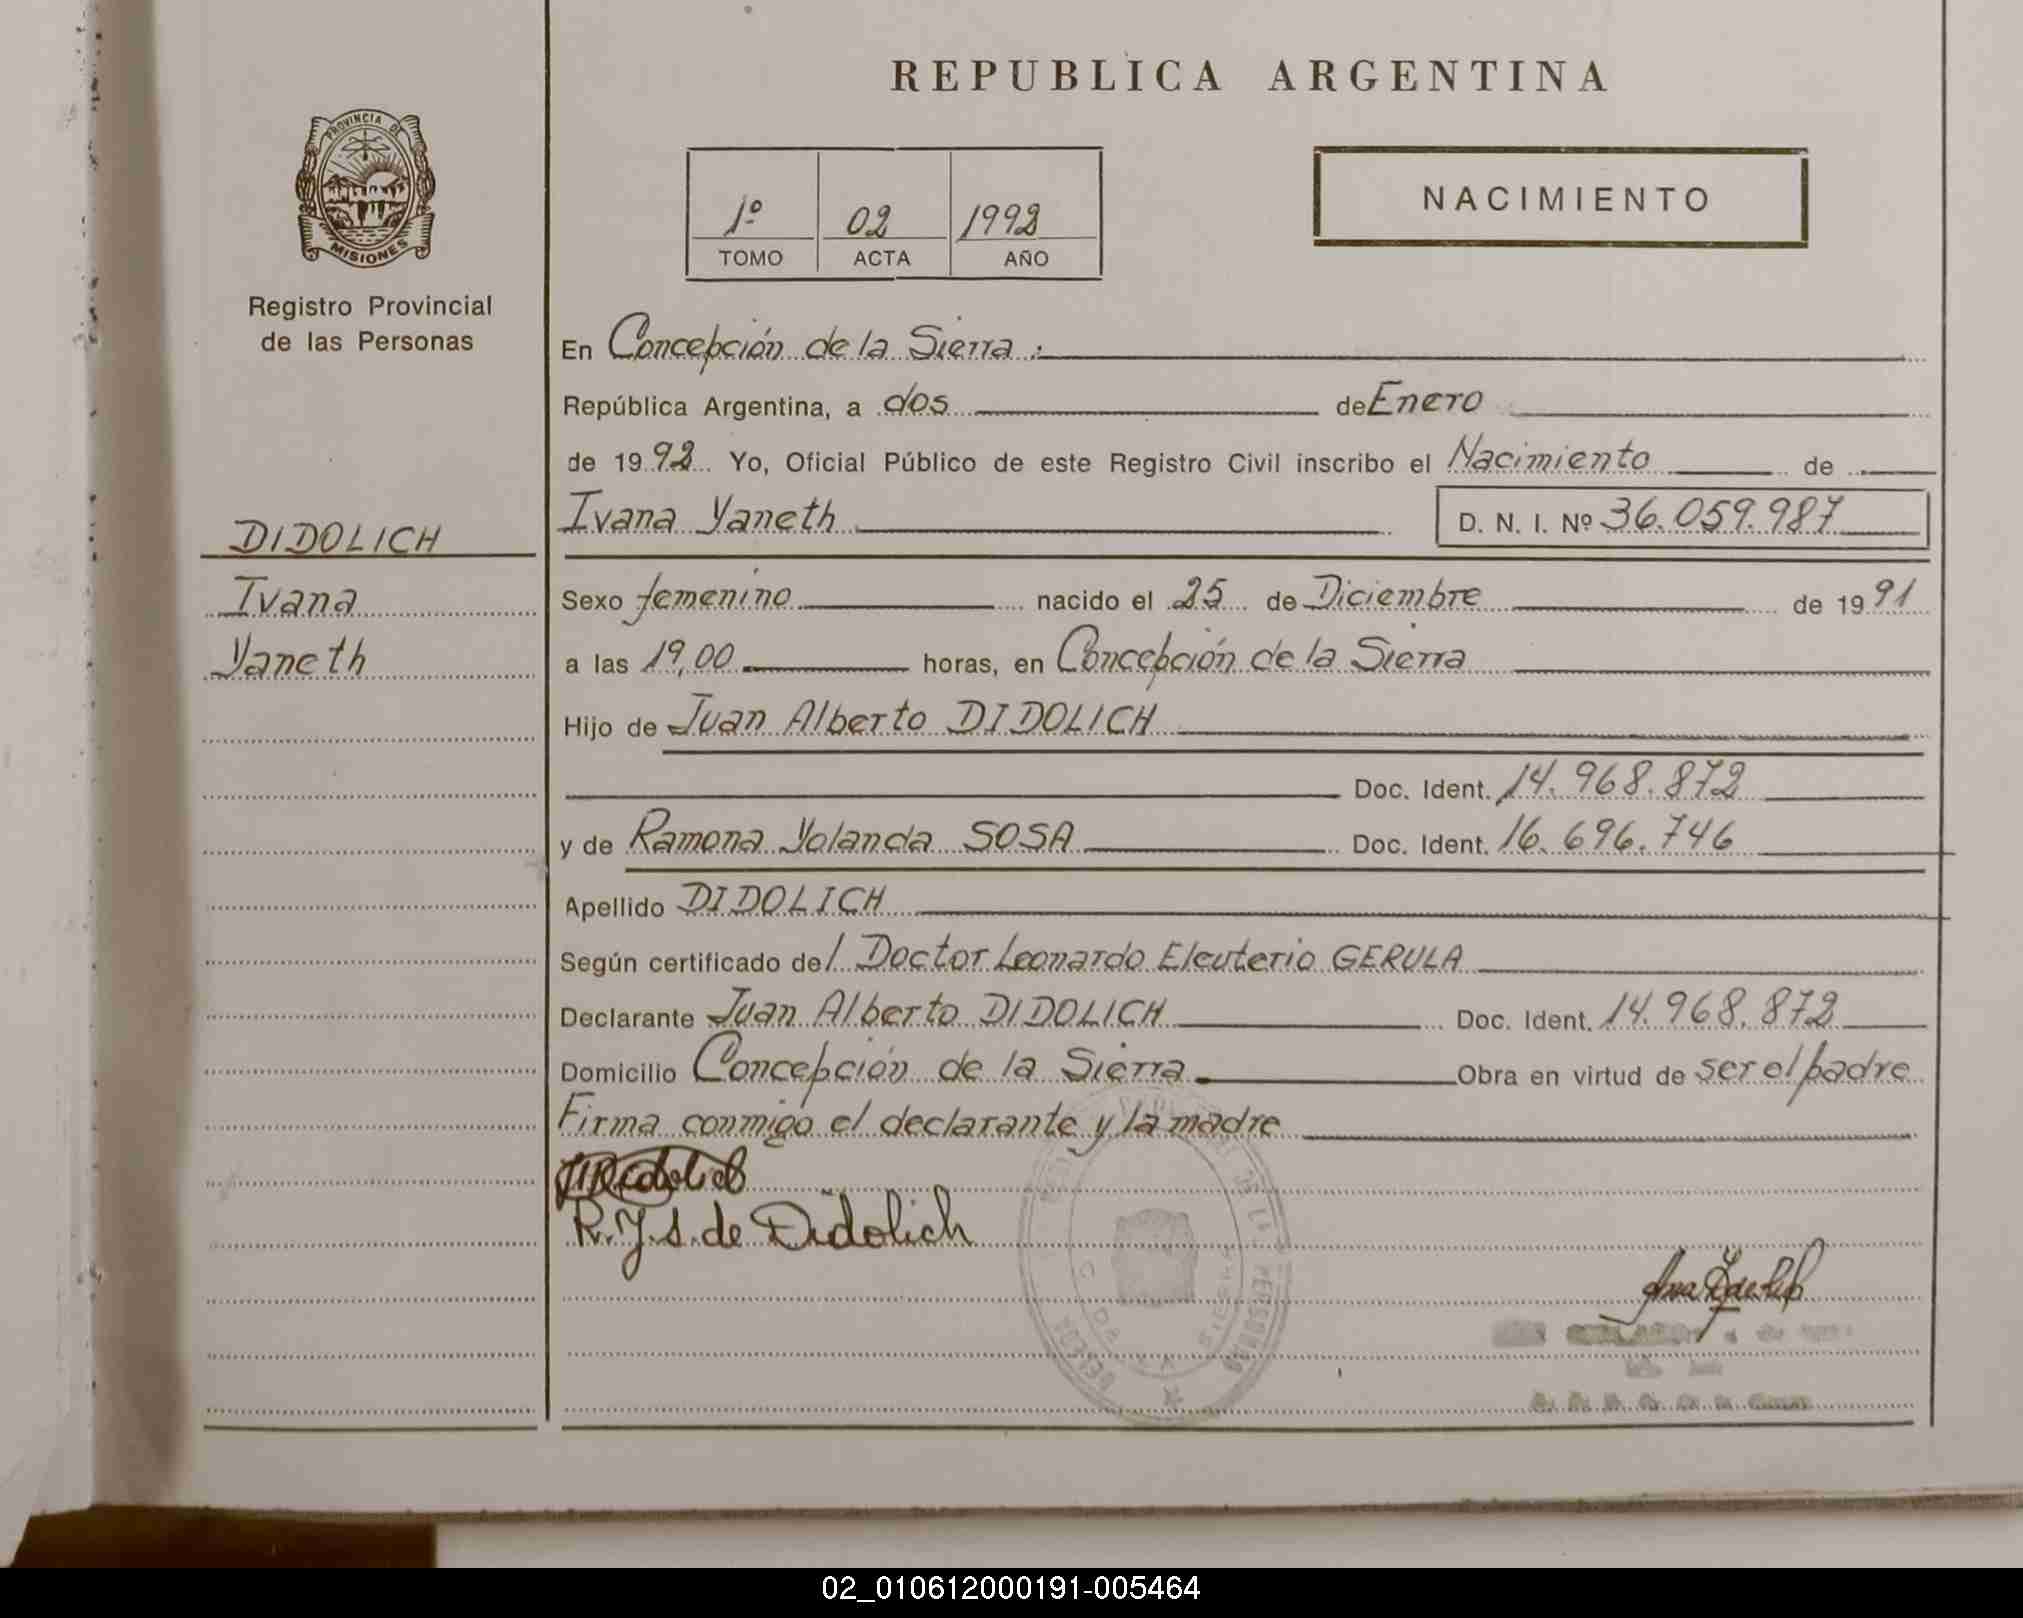 REPUBLICA ARGENTINA
PROVINCIA DE
MISIONES
Registro Provincial
de las Personas
1º 02 1992
TOMO ACTA AÑO
NACIMIENTO
En Concepción de la Sierra.
República Argentina, a dos de Enero
de 1992 Yo, Oficial Público de este Registro Civil inscribo el Nacimiento de
Ivana Yaneth D. N. I. Nº 36.059.987
DIDOLICH
Ivana
Yaneth
Sexo femenino nacido el 25 de Diciembre de 1991
a las 19,00 horas, en Concepción de la Sierra
Hijo de Juan Alberto DIDOLICH
Doc. Ident. 14.968.872
y de Ramona Yolanda SOSA Doc. Ident. 16.696.746
Apellido DIDOLICH
Según certificado del Doctor Leonardo Eleuterio GERULA
Declarante Juan Alberto DIDOLICH Doc. Ident. 14.968.872
Domicilio Concepción de la Sierra Obra en virtud de ser el padre
Firma conmigo el declarante y la madre
R.Y.S. de Didolich
02_010612000191-005464